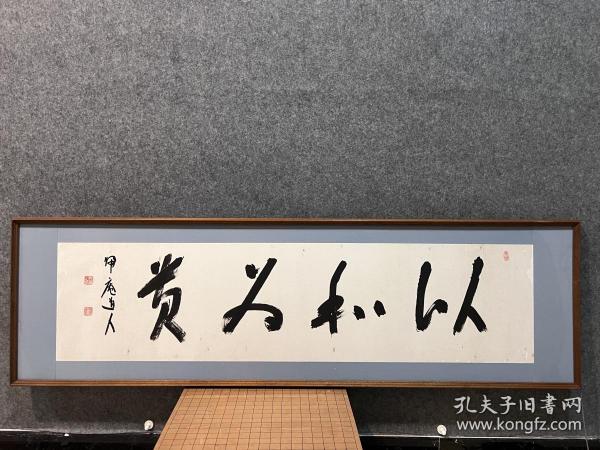 以和为贵
甲庵道人
孔夫子旧書网
www.kongfz.com